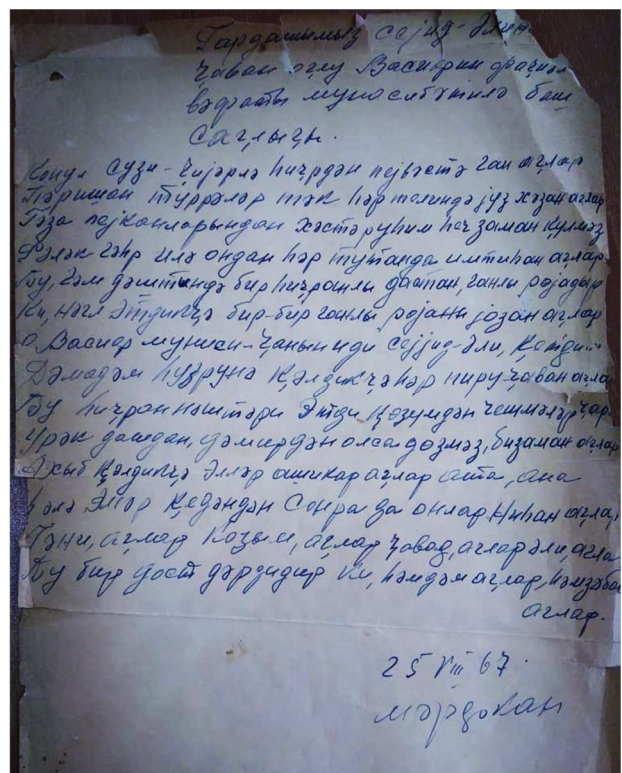 Гардашымыз сејид-Әлин
ҹаван оғлу Васиғин фаҹиәли
вәфаты мүнасибәтилә баш
сағлығы.
Көнүл сузи-ҹијәрлә һиҹрдән пејвәстә ган ағлар
Пәришан түррәләр тәк һәр телиндә јүз хәзан ағлар
Гәза пејканларындан хәстә руһим һеч заман күлмәз
Фәләк гәһр илә ондан һәр тутанда имтиһан ағлар
Бу, гәм дәштиндә бир һиҹранлы дастан, ганлы рөјадыр
Ки, нәгл етдикҹә бир-бир ганлы рөјаны јозан ағлар
О, Васиф муниси-ҹанын иди сејјид-Әли, Кетди...
Дәмадәм һүзрүнә кәлдикҹә һәр пирү ҹаван ағлар
Бу һиҹран нәштәри етди көзүмдән чешмәләр ҹари
Үрәк дашдан, дәмирдән олса дөзмәз, биз аман ағлар
Ахыб кәлдикҹә Елләр ашикар ағлар ата, ана
һәлә Елләр кедәндән Сонра да онлар Ниһан ағлар
Гәни, ағлар Казым, ағлар ҹавад, ағлар әли ағла
Бу бир дост дәрдидир ки, һәмдәм ағлар, һәмзәбан
ағлар.
25 VIII 67.
Мәрдәкан